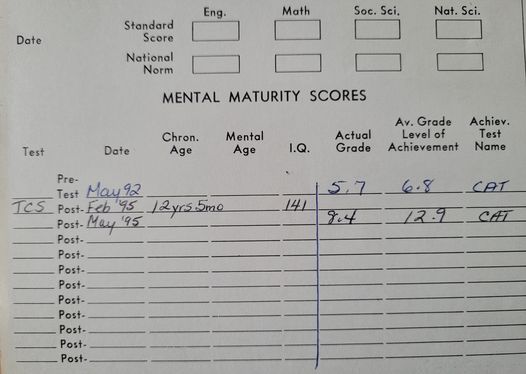 Eng. Math Soc. Sci. Nat. Sci.
Date Standard Score
National Norm
MENTAL MATURITY SCORES
Test Date Chron. Age Mental Age I.Q. Actual Grade Av. Grade Level of Achievement Achiev. Test Name
Pre-Test May 92 5.7 6.8 CAT
TCS Post- Feb '95 12yrs.5mo 141
Post- May '95 8.4 12.9 CAT
Post-
Post-
Post-
Post-
Post-
Post-
Post-
Post-
Post-